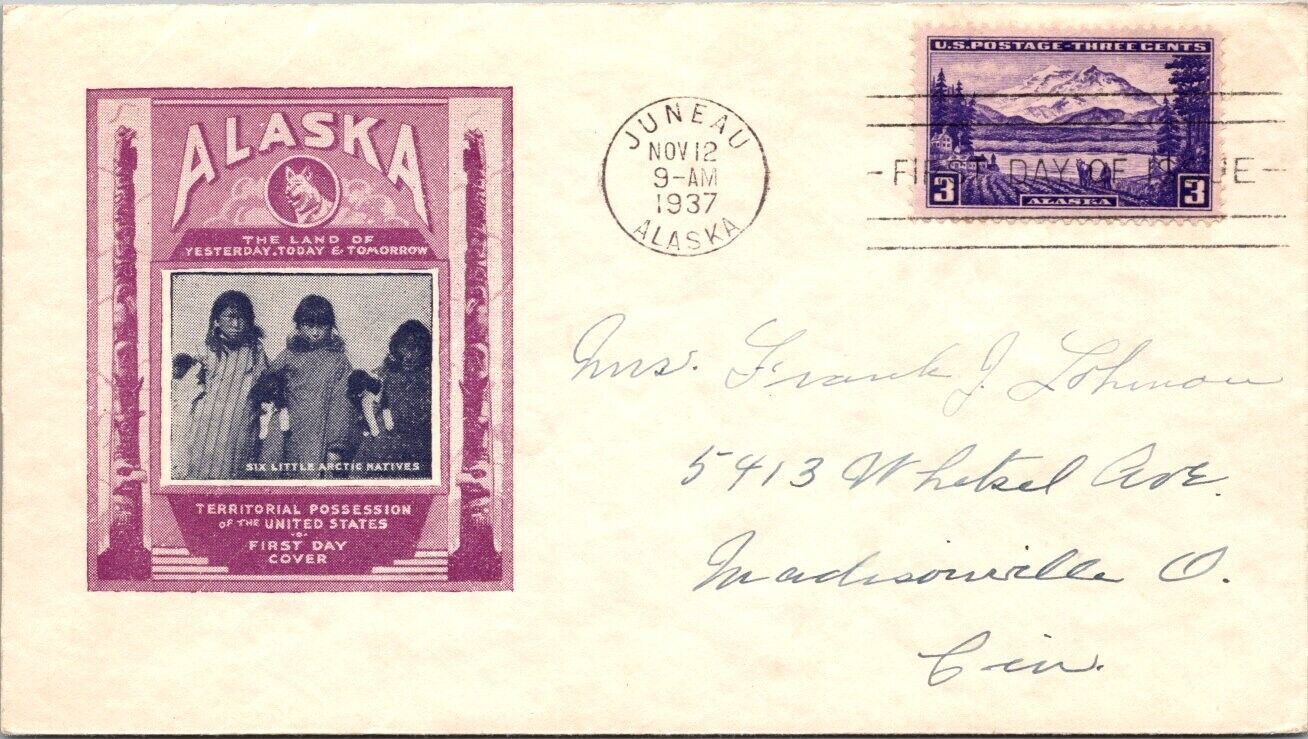 ALASKA
THE LAND OF
YESTERDAY, TODAY & TOMORROW
SIX LITTLE ARCTIC NATIVES
TERRITORIAL POSSESSION
OF THE UNITED STATES
FIRST DAY
COVER
JUNEAU
NOV 12
9-AM
1937
ALASKA
U.S. POSTAGE-THREE CENTS
FIRST DAY OF ISSUE
3 ALASKA 3
Mrs. Frank J. Lohman
5413 Whetsel Ave.
Madisonville O.
Cin.